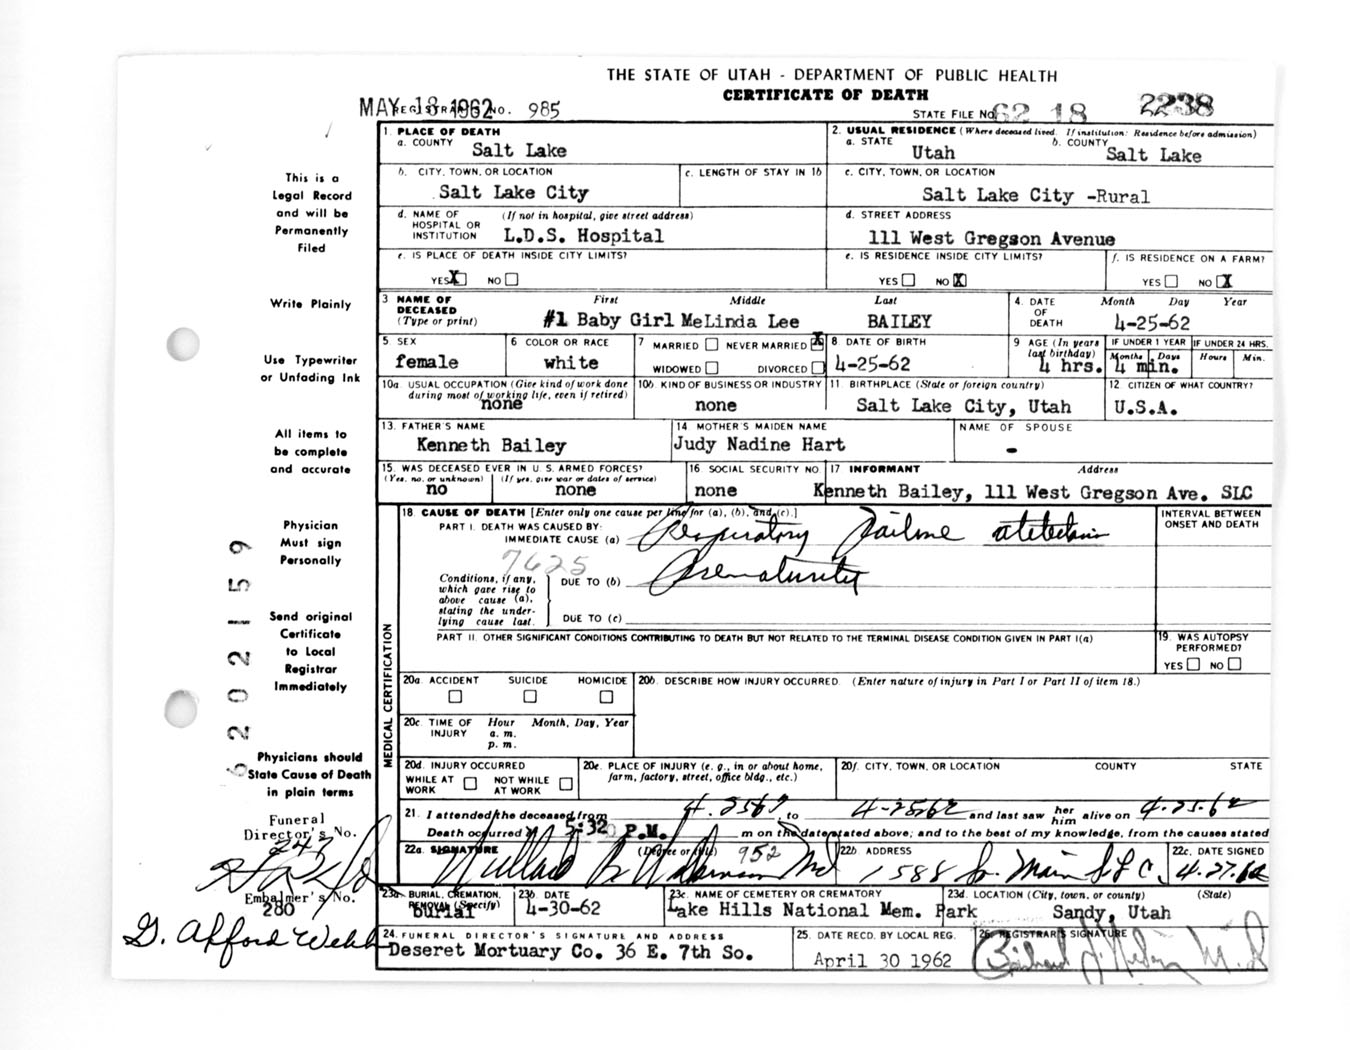 THE STATE OF UTAH - DEPARTMENT OF PUBLIC HEALTH
CERTIFICATE OF DEATH
MAY 18 1962 REGISTRAR'S NO. 985
STATE FILE NO. 62 18 2238
1. PLACE OF DEATH
a. COUNTY Salt Lake
2. USUAL RESIDENCE (Where deceased lived. If institution: Residence before admission)
a. STATE Utah b. COUNTY Salt Lake
b. CITY, TOWN, OR LOCATION Salt Lake City
c. LENGTH OF STAY IN 1b
c. CITY, TOWN, OR LOCATION Salt Lake City -Rural
d. NAME OF HOSPITAL OR INSTITUTION (If not in hospital, give street address) L.D.S. Hospital
d. STREET ADDRESS 111 West Gregson Avenue
e. IS PLACE OF DEATH INSIDE CITY LIMITS?
YES X NO
e. IS RESIDENCE INSIDE CITY LIMITS?
YES NO X
f. IS RESIDENCE ON A FARM?
YES NO X
3 NAME OF DECEASED (Type or print) First Middle Last
#1 Baby Girl MeLinda Lee BAILEY
4. DATE OF DEATH Month Day Year
4-25-62
5 SEX female
6 COLOR OR RACE white
7 MARRIED NEVER MARRIED X
WIDOWED DIVORCED
8 DATE OF BIRTH 4-25-62
9 AGE (In years last birthday) 4 hrs.
IF UNDER 1 YEAR Months Days 4 min.
IF UNDER 24 HRS. Hours Min.
10a. USUAL OCCUPATION (Give kind of work done during most of working life, even if retired) none
10b. KIND OF BUSINESS OR INDUSTRY none
11 BIRTHPLACE (State or foreign country) Salt Lake City, Utah
12 CITIZEN OF WHAT COUNTRY? U.S.A.
13. FATHER'S NAME Kenneth Bailey
14 MOTHER'S MAIDEN NAME Judy Nadine Hart
NAME OF SPOUSE -
15. WAS DECEASED EVER IN U. S. ARMED FORCES?
(Yes, no, or unknown) no (If yes, give war or dates of service) none
16 SOCIAL SECURITY NO. none
17 INFORMANT Address
Kenneth Bailey, 111 West Gregson Ave. SLC
18. CAUSE OF DEATH [Enter only one cause per line for (a), (b), and (c).]
INTERVAL BETWEEN ONSET AND DEATH
PART I. DEATH WAS CAUSED BY:
IMMEDIATE CAUSE (a) Respiratory Failure
7625
Conditions, if any, which gave rise to above cause (a), stating the underlying cause last.
DUE TO (b) Prematurity
DUE TO (c)
PART II. OTHER SIGNIFICANT CONDITIONS CONTRIBUTING TO DEATH BUT NOT RELATED TO THE TERMINAL DISEASE CONDITION GIVEN IN PART I(a)
19. WAS AUTOPSY PERFORMED?
YES NO
MEDICAL CERTIFICATION
20a. ACCIDENT SUICIDE HOMICIDE
20b. DESCRIBE HOW INJURY OCCURRED. (Enter nature of injury in Part I or Part II of item 18.)
20c. TIME OF INJURY Hour Month, Day, Year
a. m.
p. m.
20d. INJURY OCCURRED
WHILE AT WORK NOT WHILE AT WORK
20e. PLACE OF INJURY (e. g., in or about home, farm, factory, street, office bldg., etc.)
20f. CITY, TOWN, OR LOCATION COUNTY STATE
21. I attended the deceased from 4.2562, to 4-2562 and last saw her him alive on 4-25-62
Death occurred 5:32 P.M. m on the date stated above; and to the best of my knowledge, from the causes stated
22a. SIGNATURE (Degree or title) 952 Md
22b. ADDRESS 1588 So. Main S L C.
22c. DATE SIGNED 4.27.62
23a. BURIAL, CREMATION, REMOVAL (Specify) burial
23b. DATE 4-30-62
23c. NAME OF CEMETERY OR CREMATORY Lake Hills National Mem. Park
23d. LOCATION (City, town, or county) (State) Sandy, Utah
24. FUNERAL DIRECTOR'S SIGNATURE AND ADDRESS
Deseret Mortuary Co. 36 E. 7th So.
25. DATE RECD. BY LOCAL REG. April 30 1962
26. REGISTRAR'S SIGNATURE
This is a
Legal Record
and will be
Permanently
Filed
Write Plainly
Use Typewriter
or Unfading Ink
All items to
be complete
and accurate
Physician
Must sign
Personally
Send original
Certificate
to Local
Registrar
Immediately
Physicians should
State Cause of Death
in plain terms
Funeral
Director's No.
247
Embalmer's No.
280
G. Afford Webb
202159